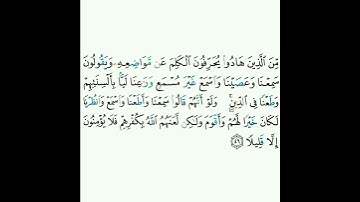 مِّنَ ٱلَّذِينَ هَادُوا۟ يُحَرِّفُونَ ٱلْكَلِمَ عَن مَّوَاضِعِهِۦ وَيَقُولُونَ
سَمِعْنَا وَعَصَيْنَا وَٱسْمَعْ غَيْرَ مُسْمَعٍ وَرَٰعِنَا لَيًّۢا بِأَلْسِنَتِهِمْ
وَطَعْنًا فِى ٱلدِّينِ ۚ وَلَوْ أَنَّهُمْ قَالُوا۟ سَمِعْنَا وَأَطَعْنَا وَٱسْمَعْ وَٱنظُرْنَا
لَكَانَ خَيْرًا لَّهُمْ وَأَقْوَمَ وَلَٰكِن لَّعَنَهُمُ ٱللَّهُ بِكُفْرِهِمْ فَلَا يُؤْمِنُونَ
إِلَّا قَلِيلًا ۝٤٦